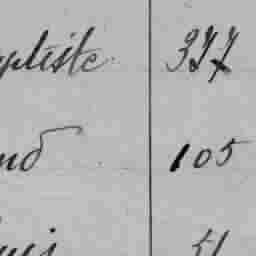 ptiste 377
nd 105
uis 51